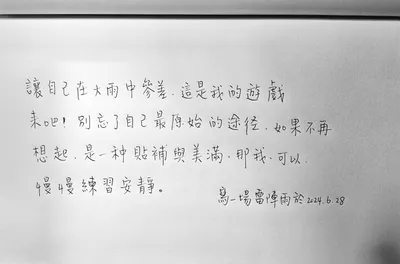 讓自己在大雨中參差，這是我的遊戲
來吧！別忘了自己最原始的途径，如果不再
想起，是一种貼補與美滿，那我，可以，
慢慢練習安靜。
寫一場雷陣雨於2024.6.28